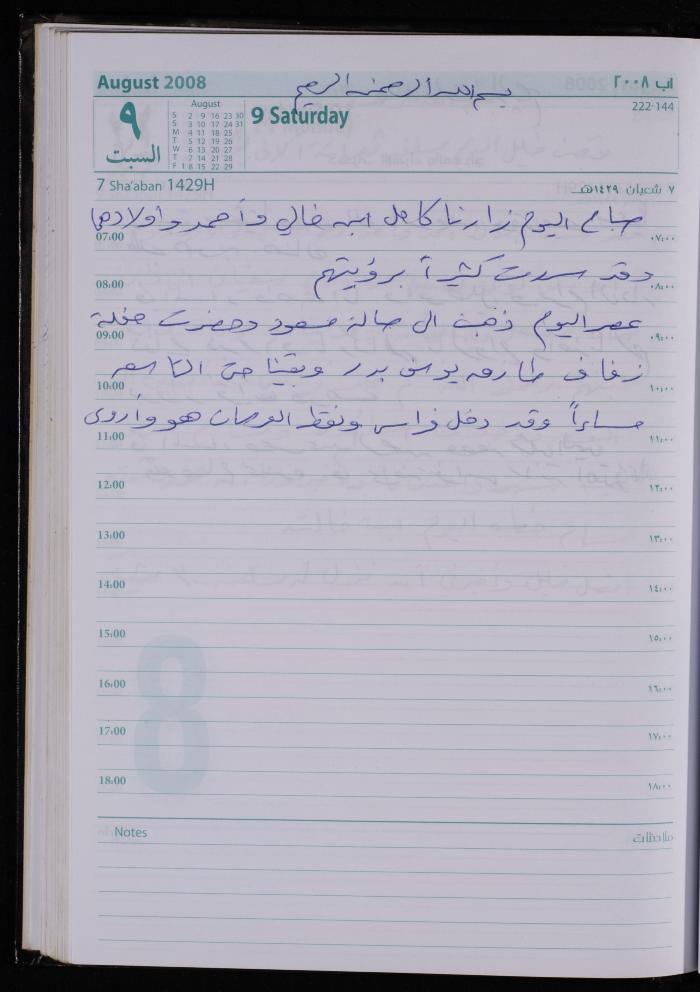 August 2008
بسم الله الرحمن الرحيم
آب ٢٠٠٨
٩
السبت
August
S 2 9 16 23 30
S 3 10 17 24 31
M 4 11 18 25
T 5 12 19 26
W 6 13 20 27
T 7 14 21 28
F 1 8 15 22 29
9 Saturday
222-144
7 Sha'aban 1429H
٧ شعبان ١٤٢٩هـ
صباح اليوم زارنا كامل ابن خالي وأحمد وأولادهما
07:00 ٠٧:٠٠
وقد سررت كثيراً برؤيتهم
08:00 ٠٨:٠٠
عصر اليوم ذهبت الى صالة مسعود وحضرت حفلة
09:00 ٠٩:٠٠
زفاف طارق يوسف بدر وبقينا حتى التاسعه
10:00 ١٠:٠٠
مساءاً وقد دخل فراس ونقط العرسان هو وأروى
11:00 ١١:٠٠
12:00 ١٢:٠٠
13:00 ١٣:٠٠
14:00 ١٤:٠٠
15:00 ١٥:٠٠
16:00 ١٦:٠٠
17:00 ١٧:٠٠
18:00 ١٨:٠٠
8
Notes ملاحظات